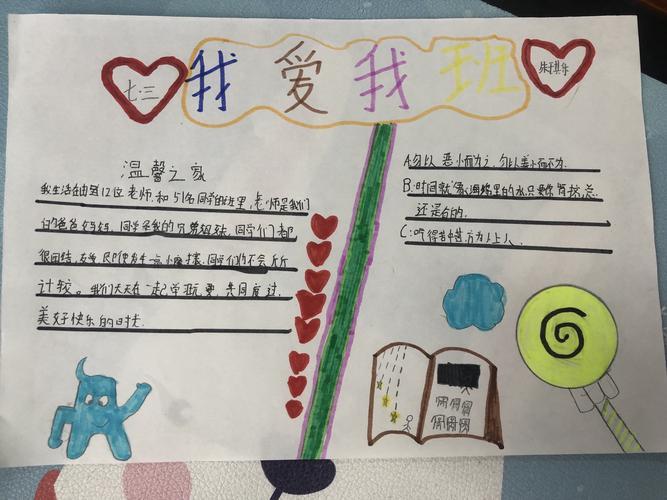 七.三
我爱我班
温馨之家
我生活在由12位老师和51名同学的班里,老师是我们
的爸爸妈妈,同学是我的兄弟姐妹,同学们都
很团结,友爱,即使发生一点小摩擦,同学们也不会斤斤
计较。我们天天在一起学玩,更共同度过
美好快乐的日子.
A:勿以恶小而为之,勿以善小而不为.
B:时间就像海绵里的水只要你肯挤,总
还是有的.
C:吃得苦中苦,方为人上人.